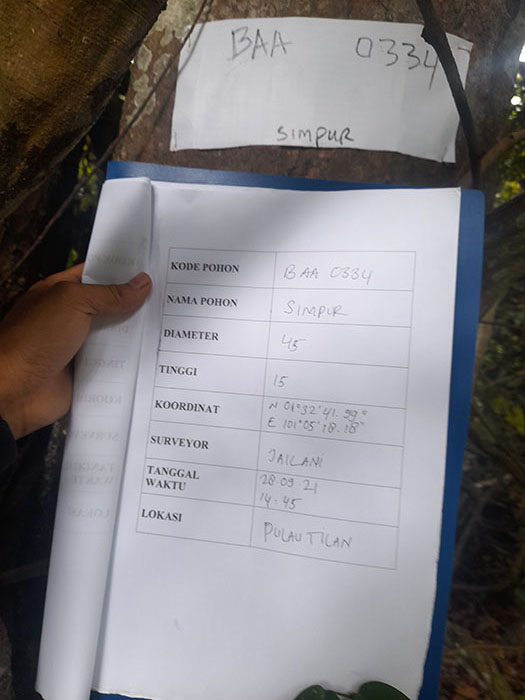 BAA 0334
SIMPUR
KODE POHON BAA 0334
NAMA POHON SIMPUR
DIAMETER 45
TINGGI 15
KOORDINAT N 01°32'41.99"
E 101°05'18.18"
SURVEYOR JAILANI
TANGGAL 28 09 21
WAKTU 14.45
LOKASI PULAU TILAN